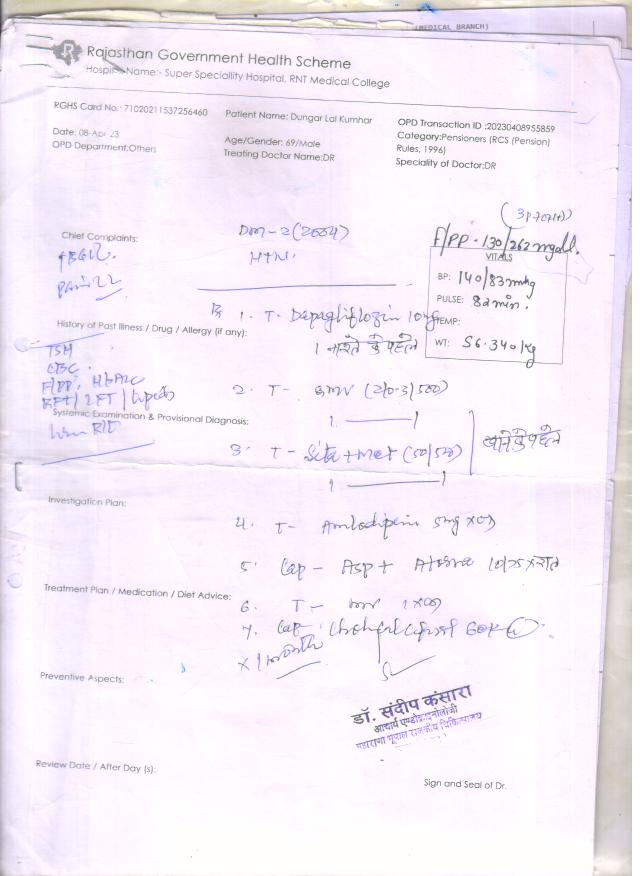 (MEDICAL BRANCH)
Rajasthan Government Health Scheme
Hospital Name:- Super Speciallity Hospital, RNT Medical College
RGHS Card No.: 71020211537256460
Patient Name: Dungar Lal Kumhar
OPD Transaction ID :20230408955859
Date: 08-Apr-23
Age/Gender: 69/Male
Category:Pensioners (RCS (Pension) Rules, 1996)
OPD Department:Others
Treating Doctor Name:DR
Speciality of Doctor:DR
Chief Complaints:
DM-2 (2004)
HTN.
F/PP. 130/262 mg/dl.
VITALS
BP: 140/83 mmhg
PULSE: 82 min.
TEMP:
WT: 56.340/Kg
Rx 1. T. Dapagliflozin 10mg
1 नाश्ते के पहले
History of Past Illness / Drug / Allergy (if any):
TSH
CBC
F/PP, HbA1C
RFT/LFT/Lipids
2. T-
1 1
Systemic Examination & Provisional Diagnosis:
3. T- Sita + Met (50/500)
खाने के पहले
1 1
Investigation Plan:
4. T- Amlodipin 5mg x OD
5. Cap - Asp + Atorva
Treatment Plan / Medication / Diet Advice:
6. T-
7. Cap. Cholecalciferol 60K
x 1 month
Preventive Aspects:
डॉ. संदीप कंसारा
आचार्य एण्डोक्राइनोलॉजी
महाराणा भूपाल राजकीय चिकित्सालय
Review Date / After Day (s):
Sign and Seal of Dr.